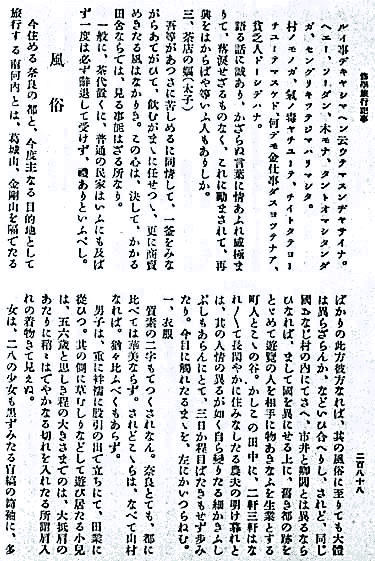 修學旅行記事
ルイ事デキヤシマヘン云ウテマスンヂヤサイナ。
ヘエー、ソーダン、木モナ、タントオマシタンダ
ガ、センググリキツテシマハリマシタ。
村ノモノガ、氣ノ毒ヤユーテ、チイトタテロー
チユーテマスケド、何デモ金仕事ダスヨツテナア、
貧乏人ドーシデハナ。
語る話に誠あり、かざらぬ言葉に情あふれ感極ま
りて、落涙せざるものなく、これに勵まされて、再
興をはからばや等いふ人もありしか。
三、茶店の嫗(太子)
吾等があつさに苦しめるに同情して、一釜をみな
がらあてがひて、飲むがまゝに任せつゝ、更に商賣
めきたる風はなかりき。この心は、決して、かかる
田舍ならでは、見る事能はざる所なり。
一般に、茶代置くに、普通の民家はいふにも及ば
ず一度は必ず辭退して受けず、ありといふべし。
風俗
今住める奈良の都と、今度主なる目的地として
旅行する南河内とは、葛城山、金剛山を隔てたる
二百八十八
ばかりの此方彼方なれば、其の風俗に至りても大體
は異らざらんか、などいひ合へりし、されど、同じ
國みなじ村の内にてさへ、市井と郷閭とは異るなら
ひなれば、まして國を異にせる上に、舊き都の跡を
とゞめて遊覽の人を相手に物あきなふを生業とする
町人とこの谷。かしこの田中に、二軒三軒はな
れ〱て長閑やかに住みなしたる農夫の明け暮れと
は、其の人情の異るが如く自ら變りたる細かきふし
ぶしもあらんにとて、三日か程目ばたきもせず歩み
たり。今日に觸れたるまゝを、左にかいつらねむ。
一、衣服
質素の二字もてつくされなん。奈良とても、都に
比べては華美ならず。されどこゝらは、なべて山村
なれば、猶々比ふべくもあらず。
男子は、重に袢襦に股引のいで立ちにて、田業に
從ひつ。其の側に草むしりなどして遊び居たる小兒
は、五六歳と思しき程の大きさまでのは、大抵肩の
あたりに稍〻はでやかなる切れを入れたる所謂肩入
れの着物きて見えぬ。
女は、二八の少女も黑ずみたる盲縞の筒袖に、多